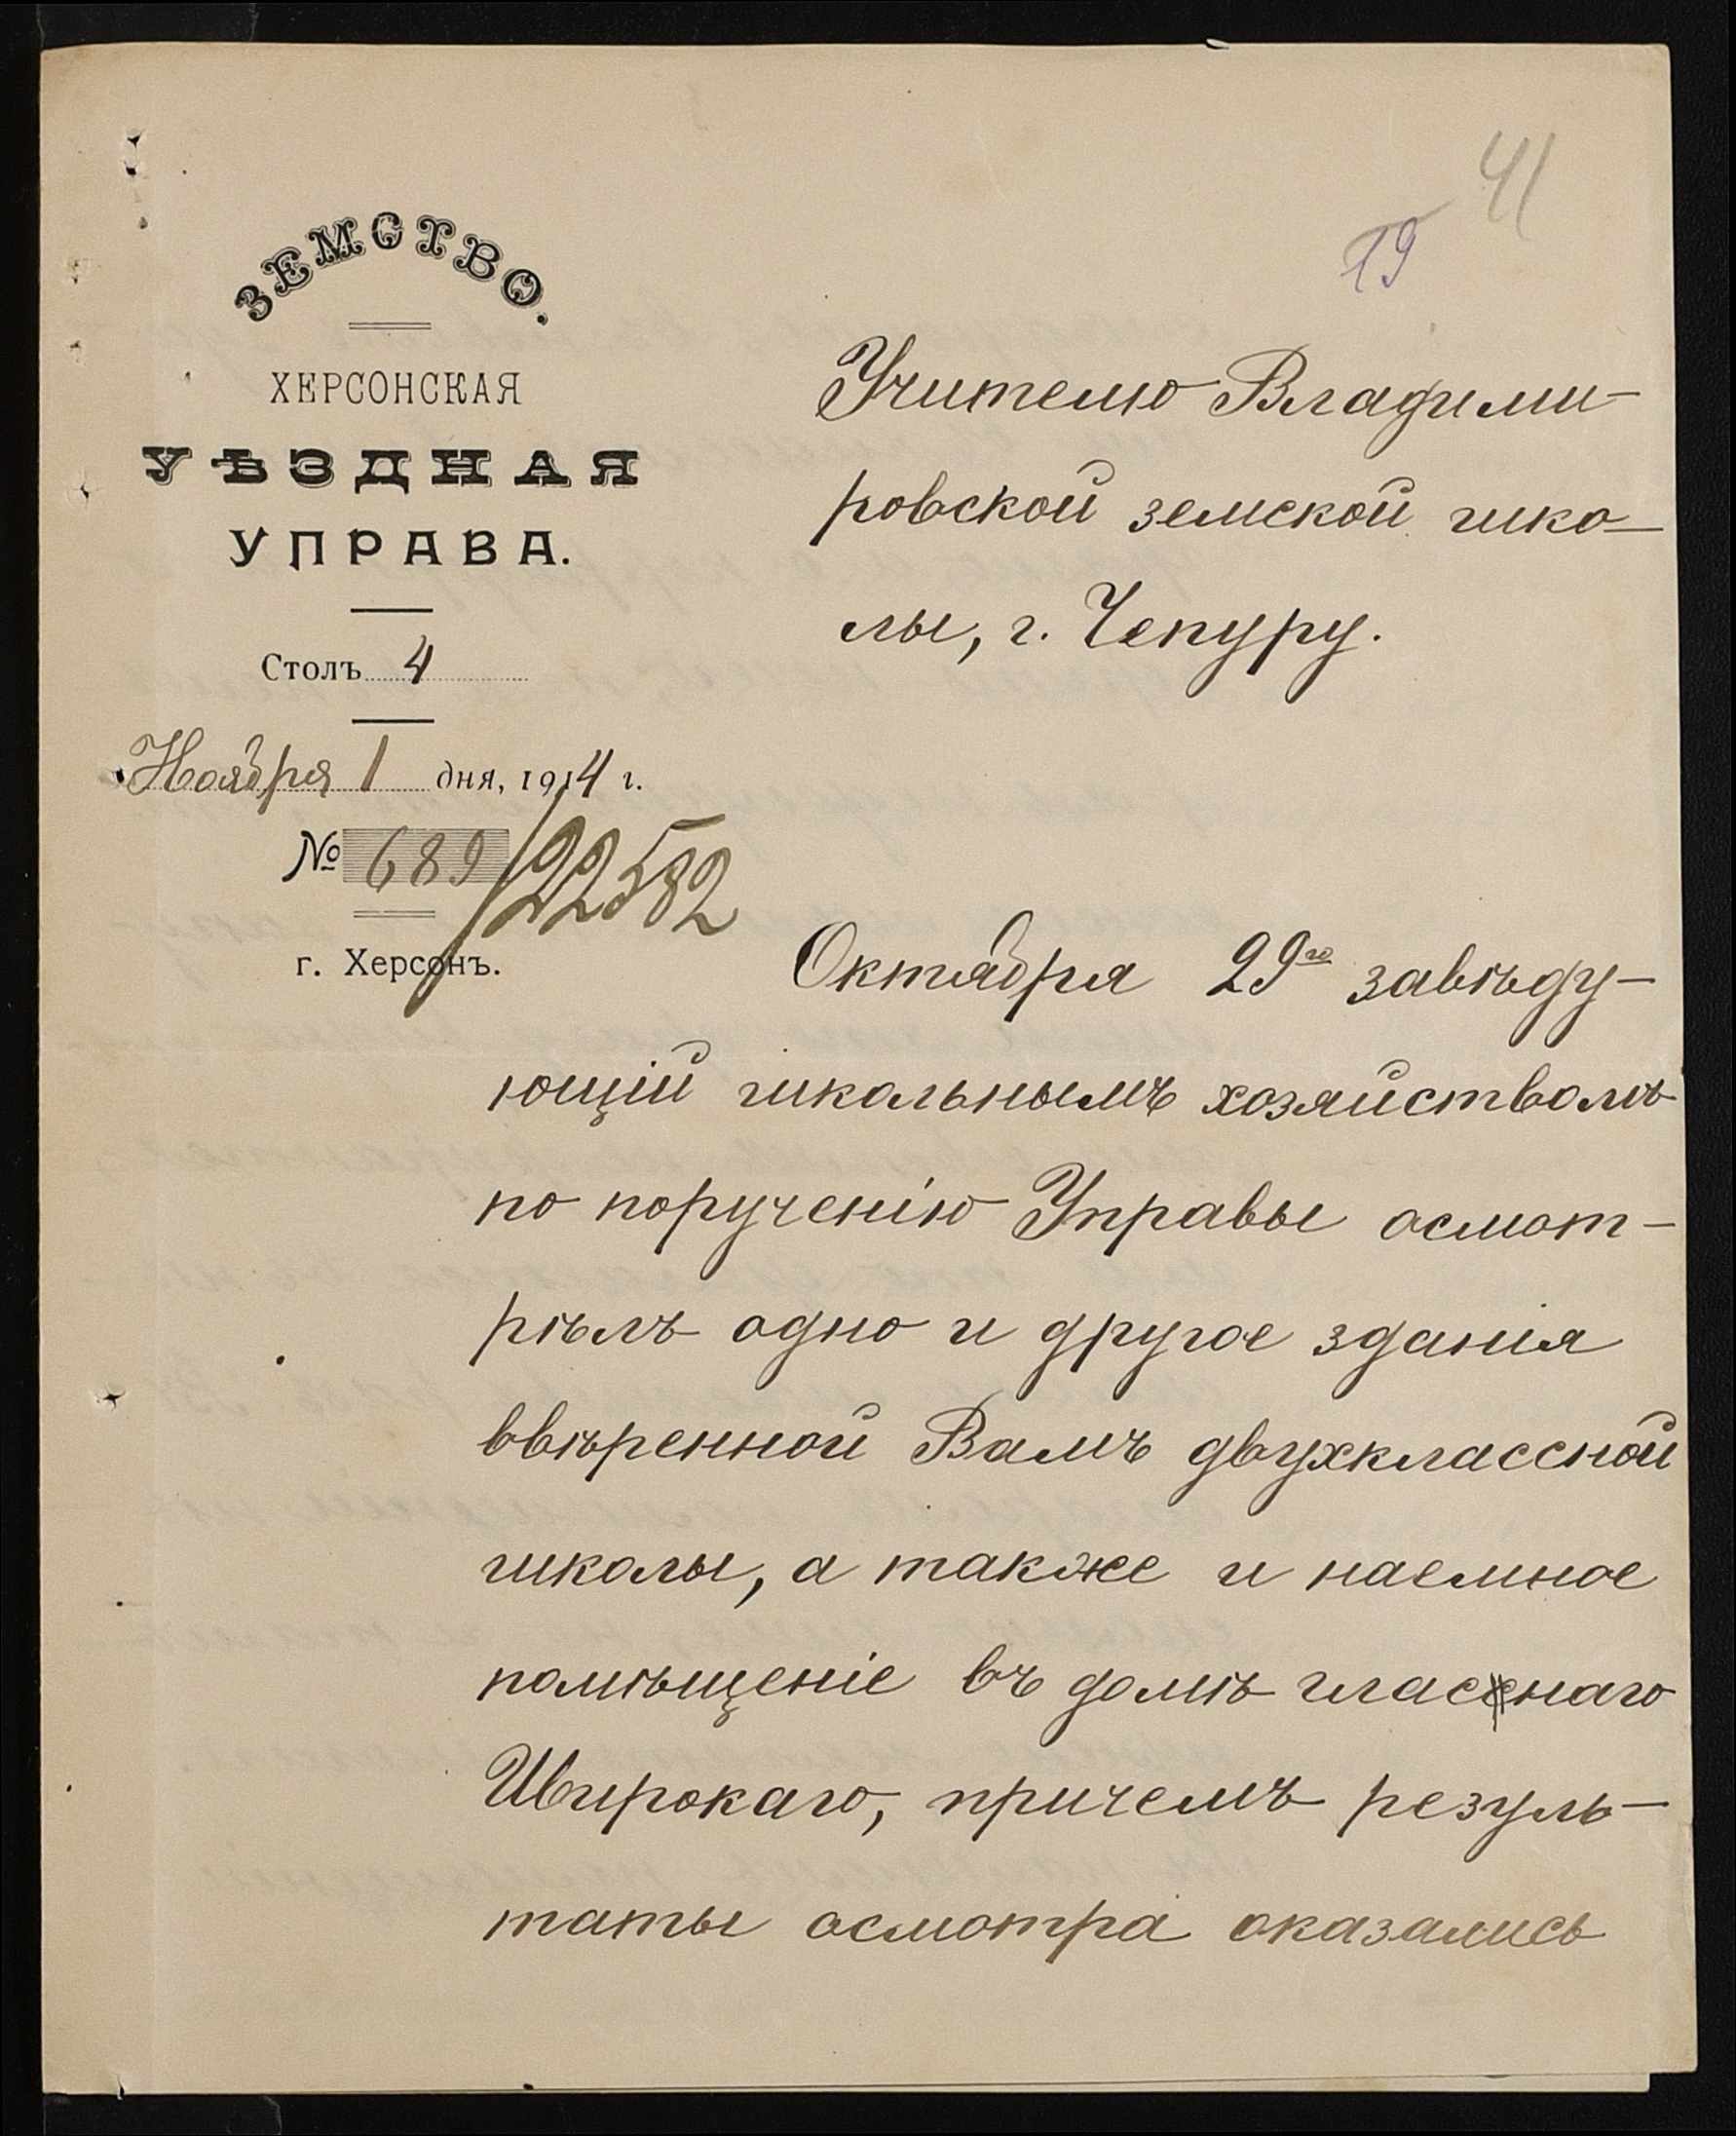 41
19
ЗЕМСТВО.
ХЕРСОНСКАЯ
УѢЗДНАЯ
УПРАВА.
Столъ 4
Ноября 1 дня, 1914 г.
№ 689/22582
г. Херсонъ.
Учителю Владими-
ровской земской шко-
лы, г. Чепуру.
Октября 29го завѣду-
ющій школьнымъ хозяйствомъ
по порученію Управы осмот-
рѣлъ одно и другое зданія
ввѣренной Вамъ двухклассной
школы, а также и наемное
помѣщеніе въ домѣ гласнаго
Швирокаго, причемъ резуль-
таты осмотра оказались